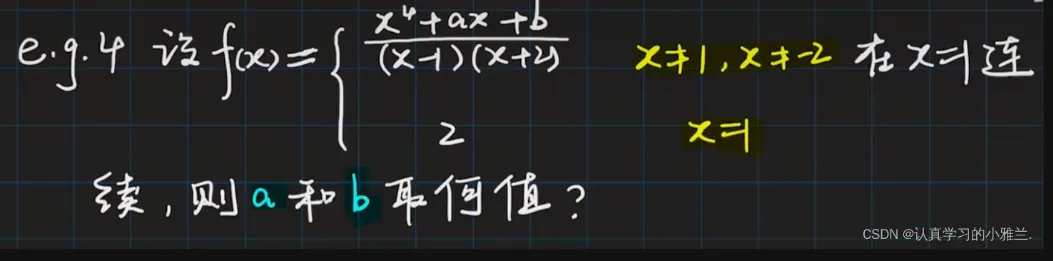 e.g.4 设 f(x)= { x⁴+ax+b / (x-1)(x+2) x≠1, x≠-2 在 x=1 连
2 x=1
续，则 a 和 b 取何值？
CSDN @认真学习的小雅兰.